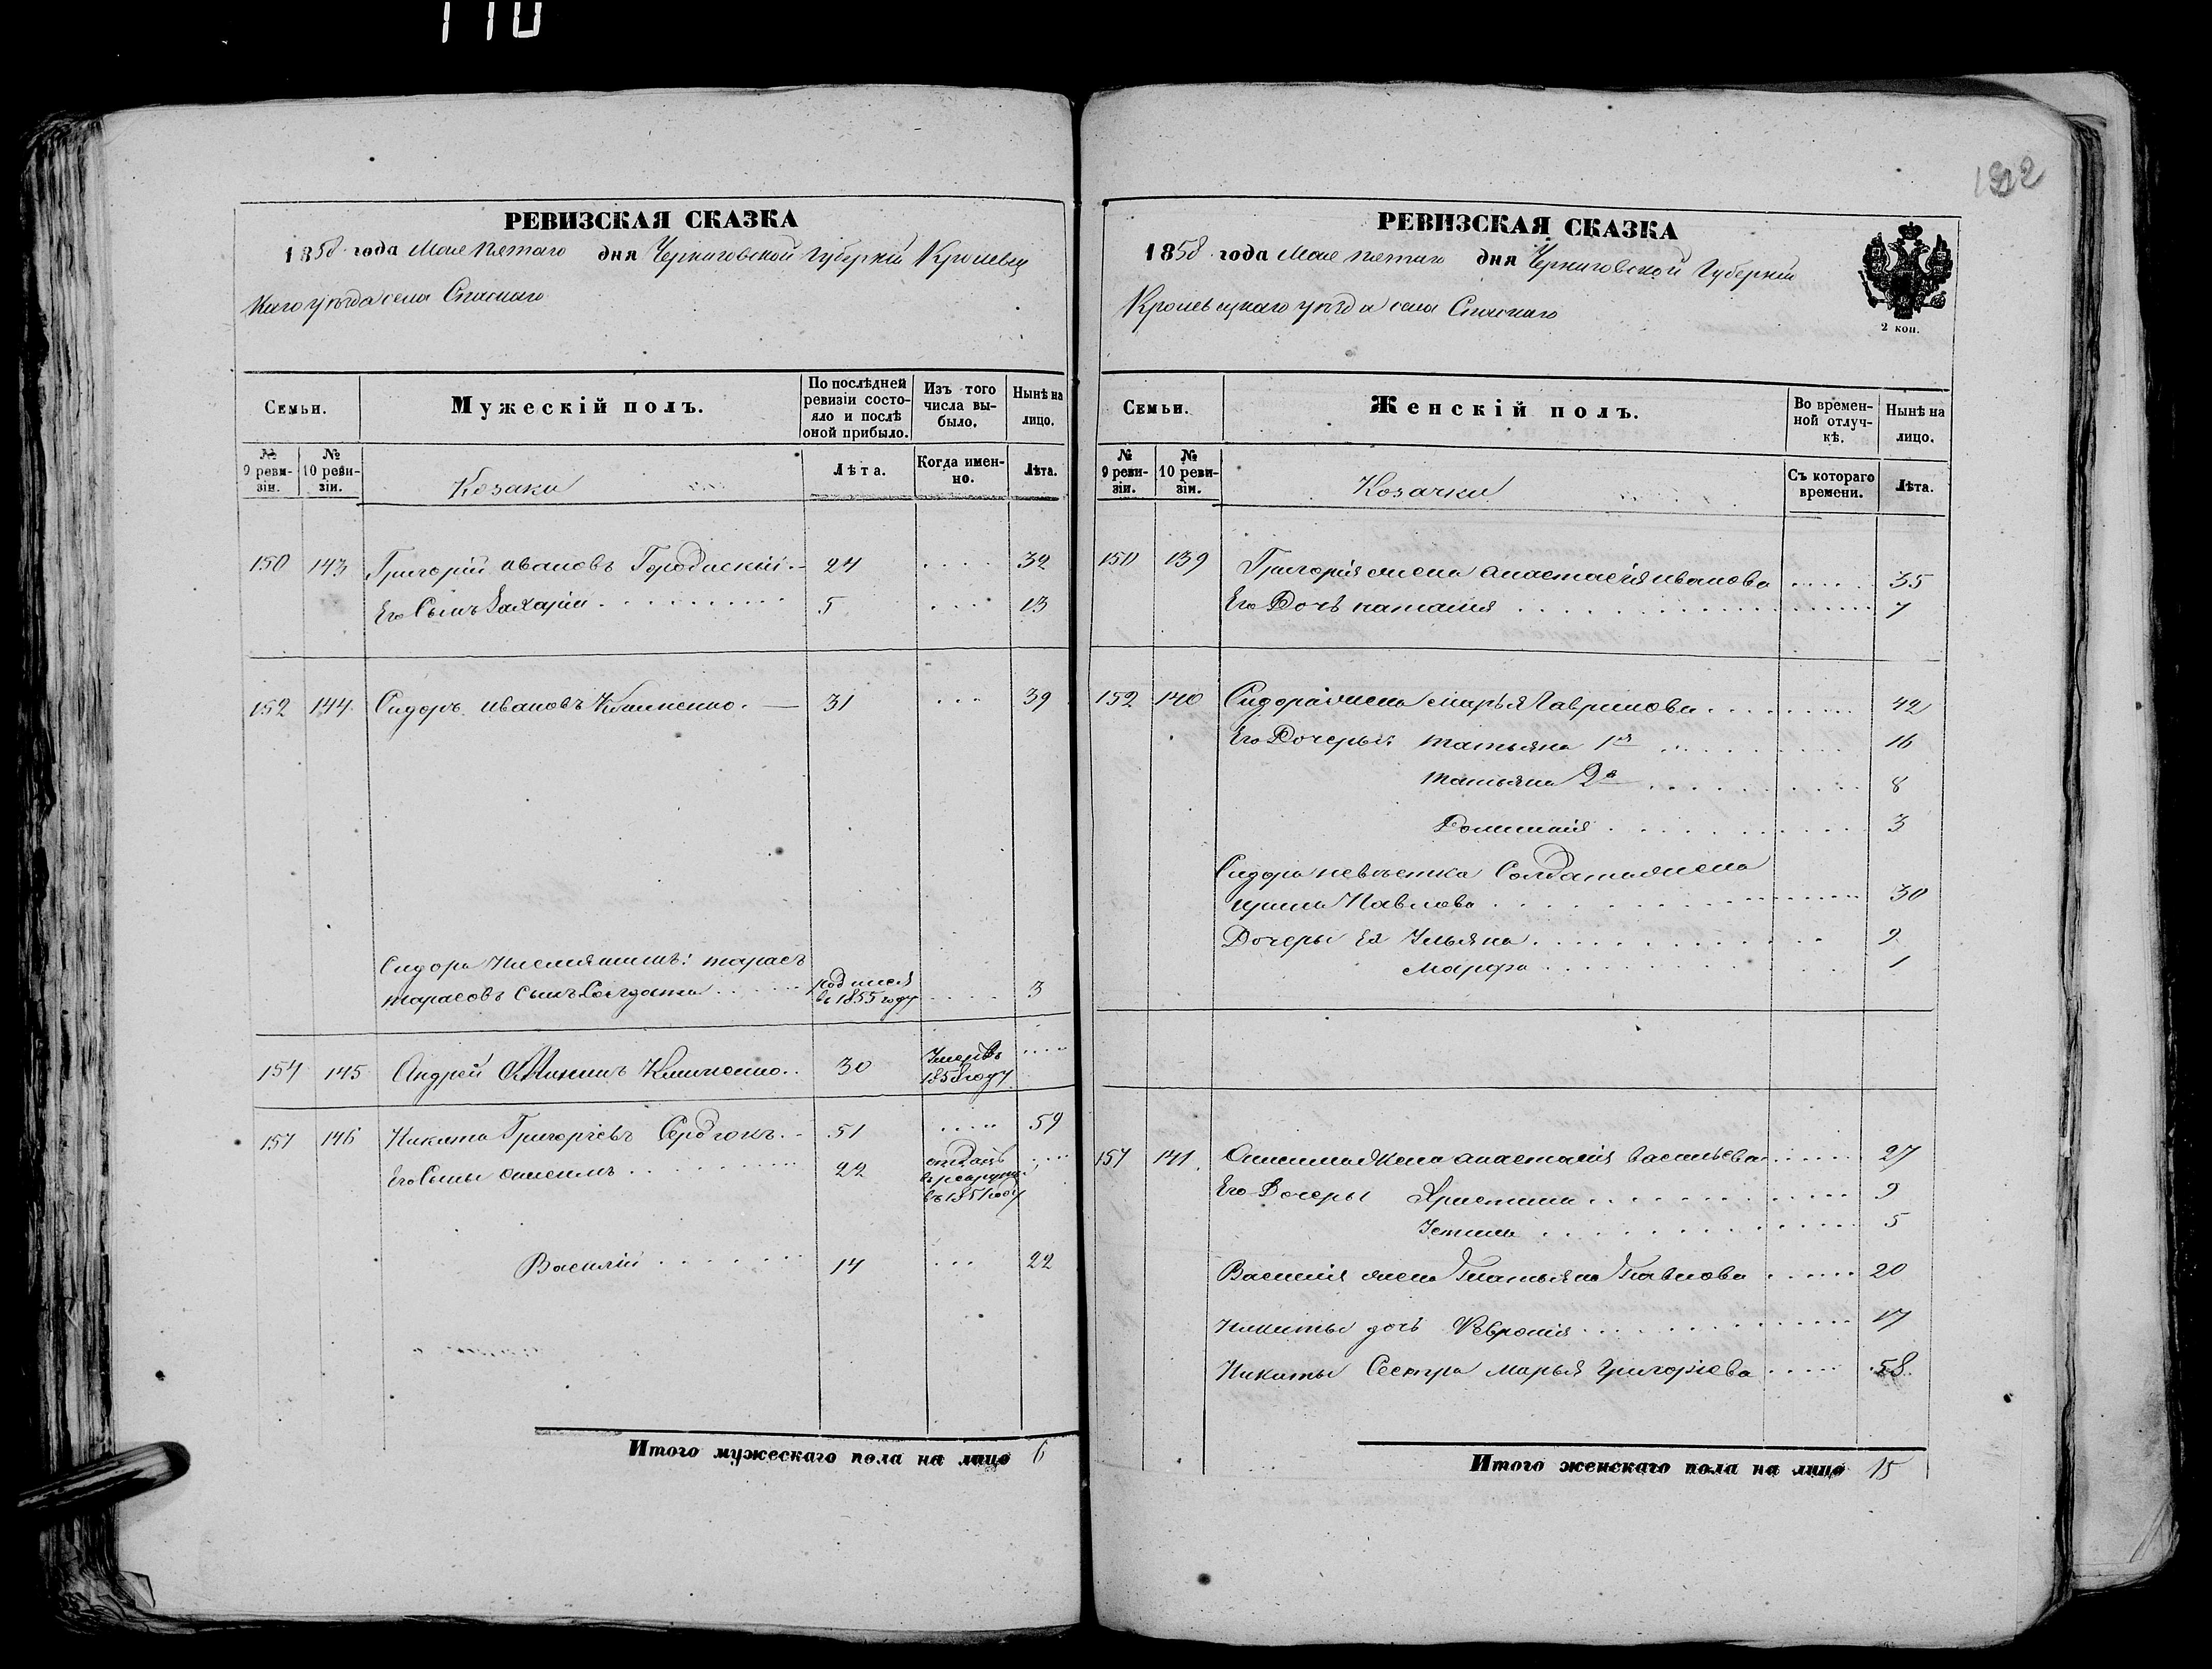 110
122
РЕВИЗСКАЯ СКАЗКА
1858 года Мая пятаго дня Черниговской Губерніи Кролевец
каго уѣзда села Спаскаго
Семьи.
Мужескій полъ.
По послѣдней ревизіи состояло и послѣ оной прибыло.
Изъ того числа выбыло.
Нынѣ на лицо.
№ 9 ревизіи.
№ 10 ревизіи.
Козаки
Лѣта.
Когда именно.
Лѣта.
150 143 Григорій ивановъ Городискій 24 .... 32
Его Сынъ Захарій 5 ... 13
152 144 Сидоръ ивановъ Клименко. 31 ... 39
Сидора племянникъ: тарасъ
тарасовъ сынъ Солдатки родился въ 1855 году .... 3
154 145 Андрей Клименко.. 30 Умеръ въ 1858 году ....
157 146 Никита Григоріевъ Сердюкъ. 51 ..... 59
Его Сыны онисимъ 22 отданъ въ рекруты въ 1851 году ....
Василій 14 ... 22
Итого мужескаго пола на лицо 6
РЕВИЗСКАЯ СКАЗКА
1858 года Мая пятаго дня Черниговской Губерніи
Кролевецкаго уѣзда села Спаскаго
2 коп.
Семьи.
Женскій полъ.
Во временной отлучкѣ.
Нынѣ на лицо.
№ 9 ревизіи.
№ 10 ревизіи.
Козачки
Съ котораго времени.
Лѣта.
150 139 Григорія жена анастасія иванова ..... 35
Его Дочь наталія 7
152 140 Сидора жена марья Гаврилова 42
Его Дочеры: татьяна 1я 16
татьяна 2я 8
Домникія 3
Сидора невѣстка Солдатка жена
ирина Павлова 30
Дочеры Ея Ульяна 9
Марфа 1
157 141. Онисима Жена анастасія васильева 27
Его Дочеры Христина 9
Устина 5
Василія жена Татьяна Павлова 20
Никиты дочь Февронія 17
Никиты Сестра марья григоріева 58
Итого женскаго пола на лицо 15